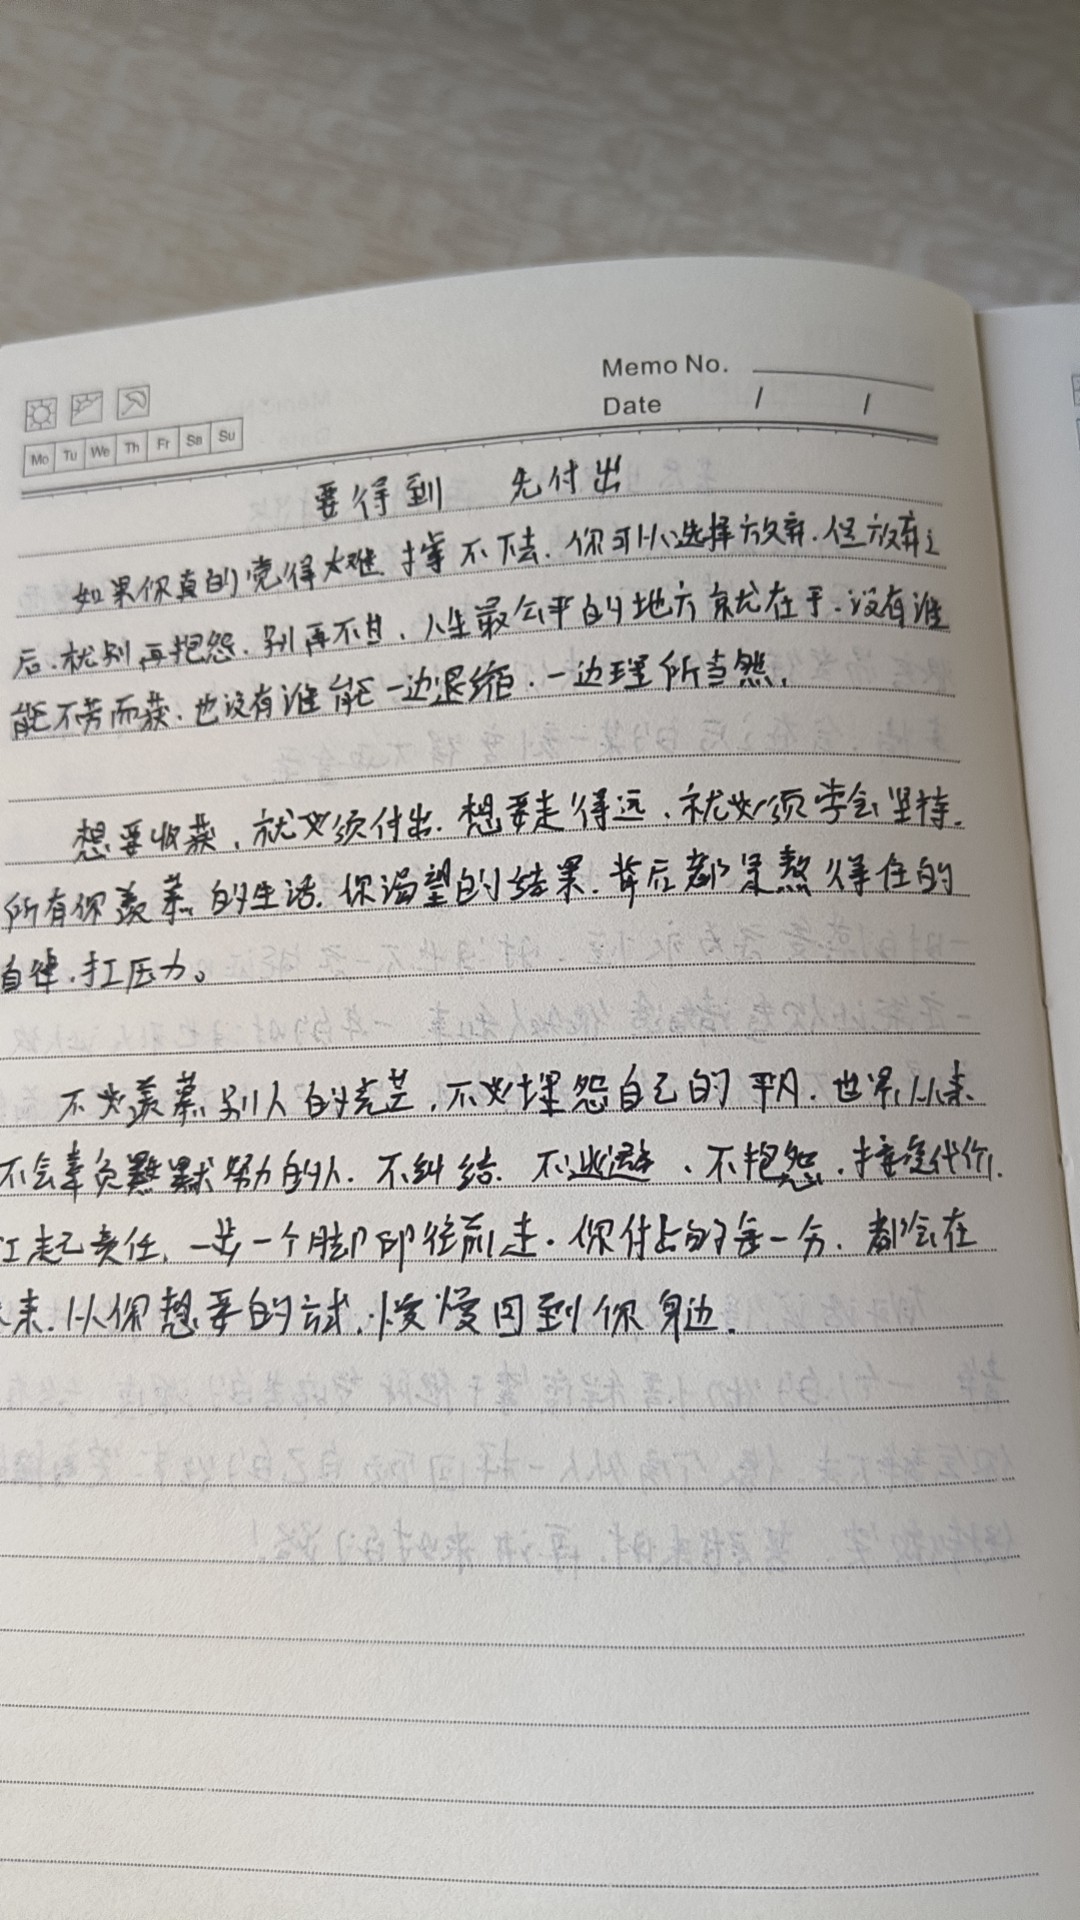 Memo No.
Date / /
Mo Tu We Th Fr Sa Su
要得到 先付出
如果你真的觉得太难,撑不下去,你可以选择放弃,但放弃之
后,就别再抱怨,别再不甘,人生最公平的地方就在于,没有谁
能不劳而获,也没有谁能一边退缩,一边理所当然,
想要收获,就必须付出,想要走得远,就必须学会坚持,
所有你羡慕的生活,你渴望的结果,背后都是熬得住的
自律,扛压力。
不必羡慕别人的光芒,不必埋怨自己的平凡,也界从来
不会辜负默默努力的人,不纠结,不逃避、不抱怨,接受代价,
扛起责任,一步一个脚印往前走,你付出的每一分,都会在
来,以你想要的方式,慢慢回到你身边,